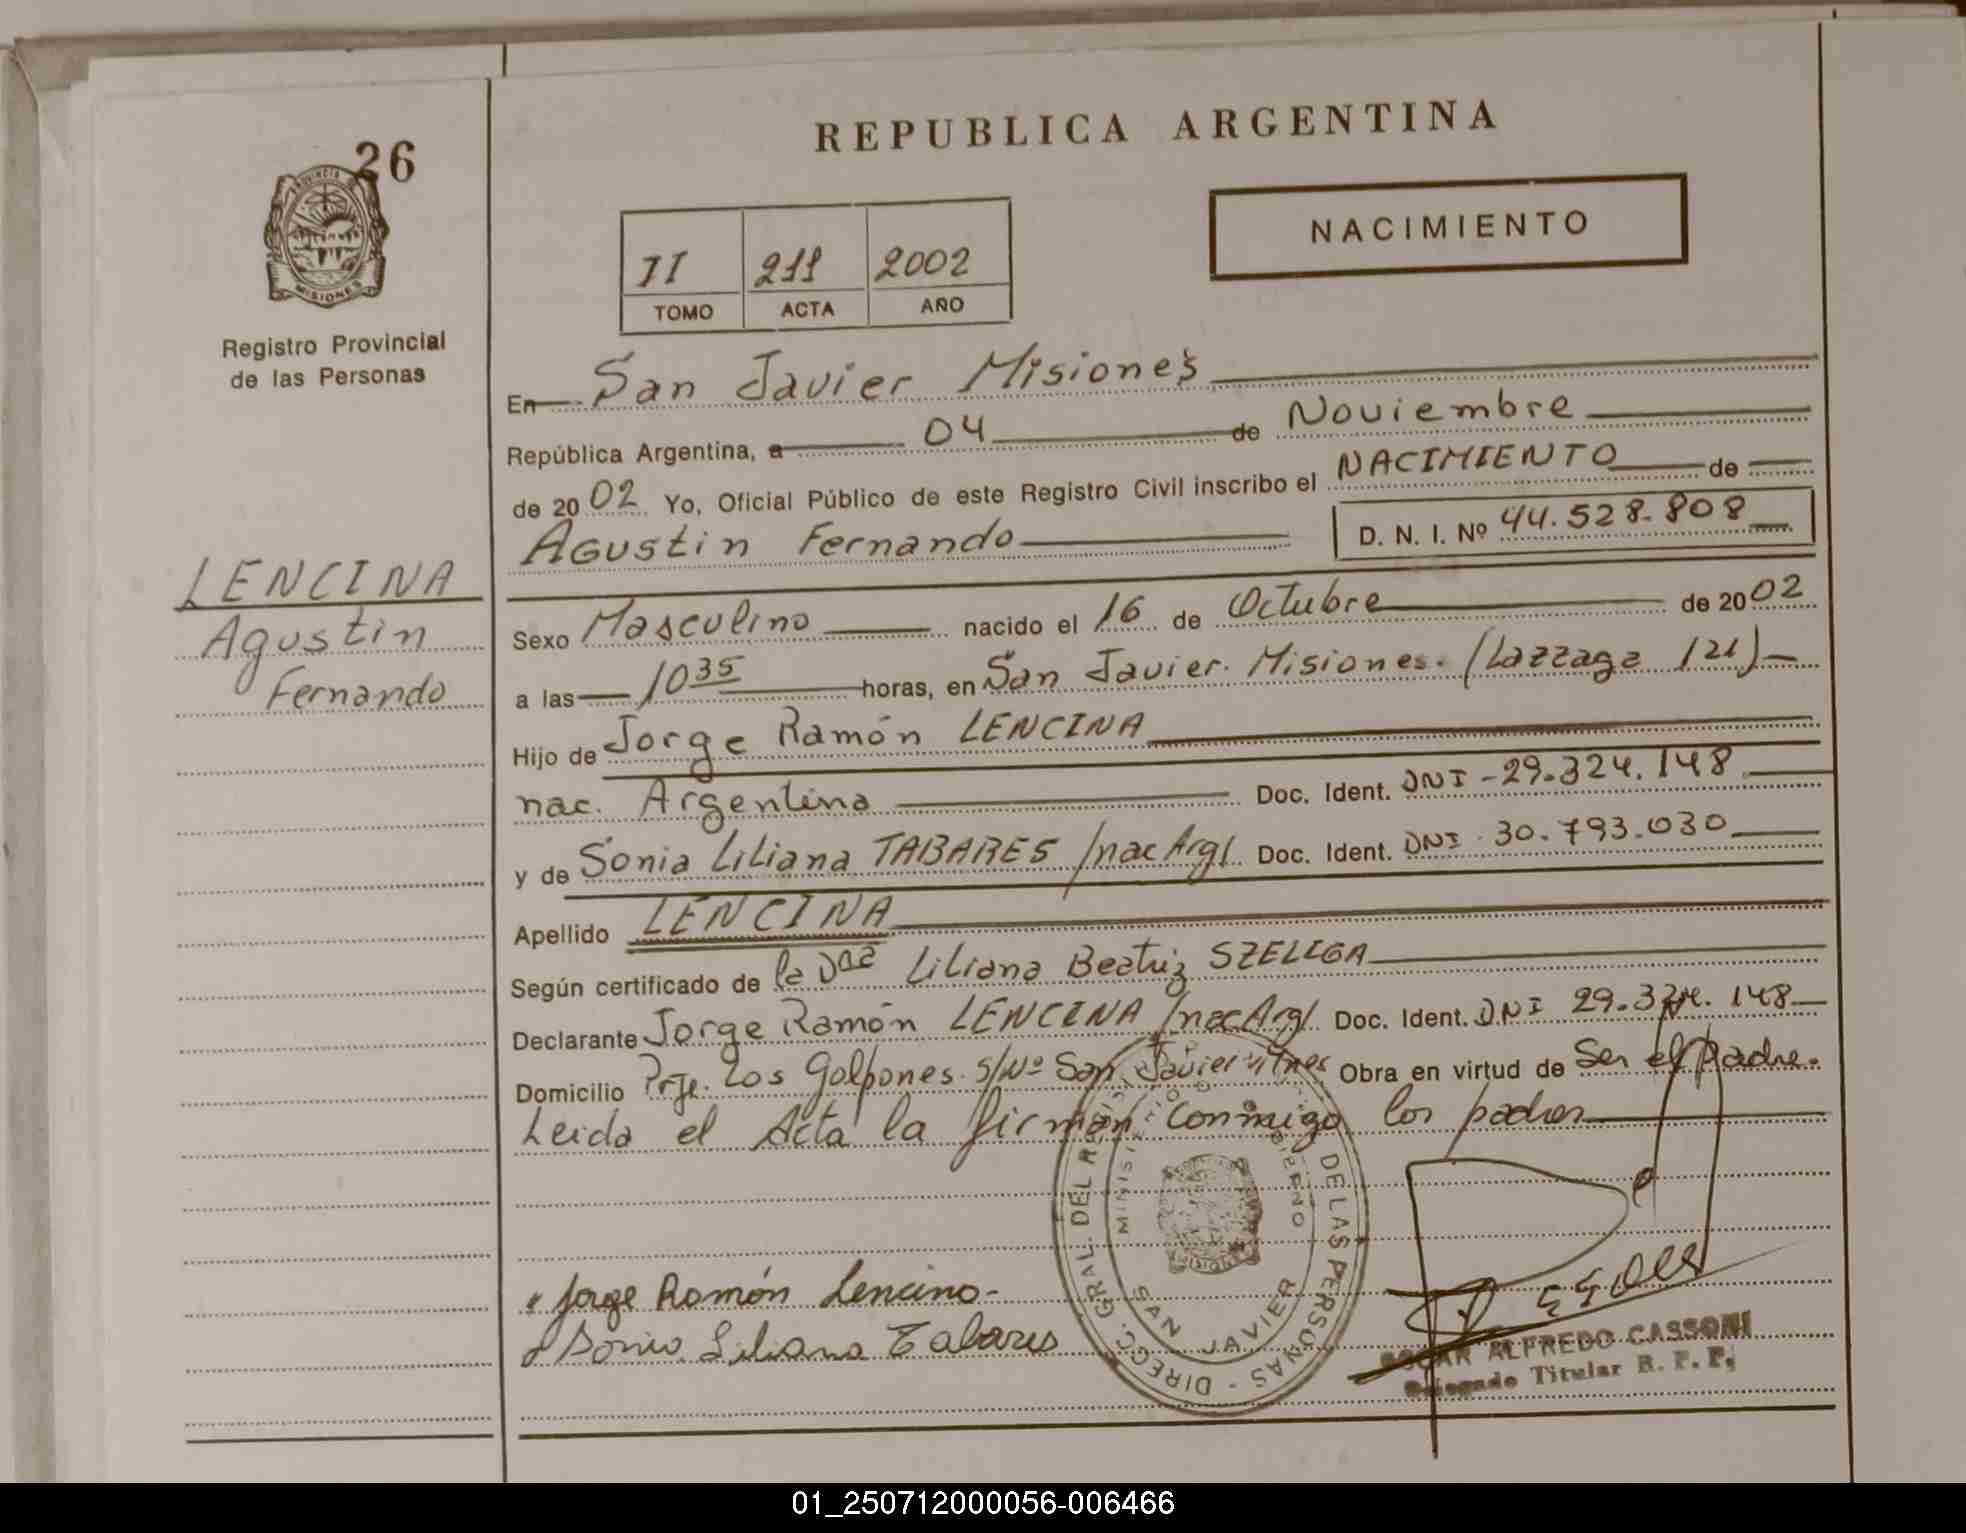 REPUBLICA ARGENTINA
26
PROVINCIA
MISIONES
NACIMIENTO
II 211 2002
TOMO ACTA AÑO
Registro Provincial
de las Personas
En San Javier Misiones
República Argentina, a 04 de Noviembre
de 2002 Yo, Oficial Público de este Registro Civil inscribo el NACIMIENTO de
Agustin Fernando D. N. I. Nº 44.528.808
LENCINA
Agustin
Fernando
Sexo Masculino nacido el 16 de Octubre de 2002
a las 10 35 horas, en San Javier. Misiones. (Lazzaga 121)
Hijo de Jorge Ramón LENCINA
nac. Argentina Doc. Ident. DNI - 29.324.148
y de Sonia Liliana TABARES /nac Arg/ Doc. Ident. DNI - 30.793.030
Apellido LENCINA
Según certificado de la Dra Liliana Beatriz SZELIGA
Declarante Jorge Ramón LENCINA /nac Arg/ Doc. Ident. DNI 29.324.148
Domicilio Prje. Los Galpones. S/Nº San Javier Mnes Obra en virtud de Ser el Padre.
Leida el Acta la firman conmigo los padres
Jorge Ramón Lencina
Sonia Liliana Tabares
DIRECC. GRAL. DEL DE LAS PERSONAS
SAN JAVIER
MISIONES
OSCAR ALFREDO CASSONI
Delegado Titular R. P. P.
01_250712000056-006466